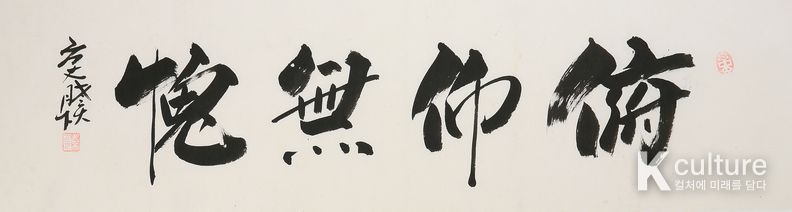 俯仰無愧
K culture
컬처에 미래를 담다